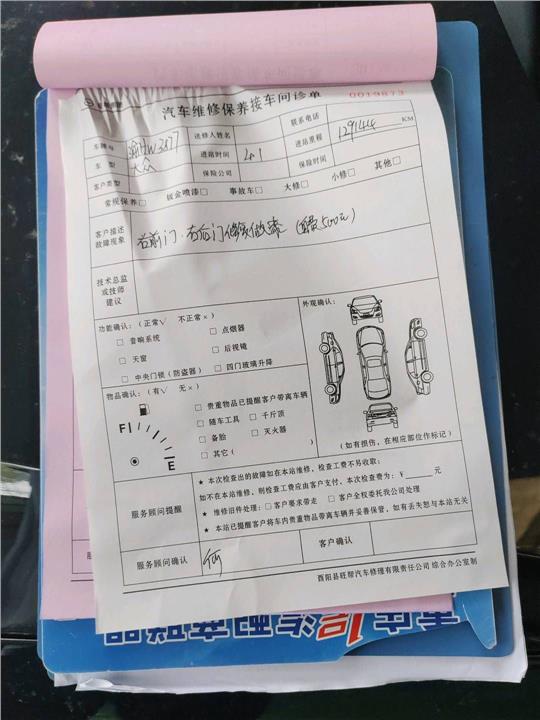 汽车维修保养接车问诊单
0019873
车牌号 送修人姓名 联系电话
车型 大众 进站时间 2.1 进站里程 129144 KM
客户类型 保险公司 保险时间
常规保养□ 钣金喷漆□ 事故车□ 大修□ 小修□ 其他□
客户描述
故障现象
右前门.右后门修复做漆
技术总监
或技师
建议
功能确认:(正常√ 不正常×)
□ 音响系统 □ 点烟器
□ 天窗 □ 后视镜
□ 中央门锁(防盗器) □ 四门玻璃升降
外观确认:
物品确认:(有√ 无×)
□ 贵重物品已提醒客户带离车辆
□ 随车工具 □ 千斤顶
□ 备胎 □ 灭火器
□ 其它( )
F
E
(如有损伤,在相应部位作标记)
服务顾问提醒
★ 本次检查出的故障如在本站维修,检查工费不另收取;
如不在本站维修,则检查工费应由客户支付,本次检查费为:¥ 元
★ 维修旧件处理:□ 客户要求带走 □ 客户全权委托我公司处理
★ 本站已提醒客户将车内贵重物品带离车辆并妥善保管,如有丢失恕与本站无关
服务顾问确认 客户确认
酉阳县旺帮汽车修理有限责任公司 综合办公室制